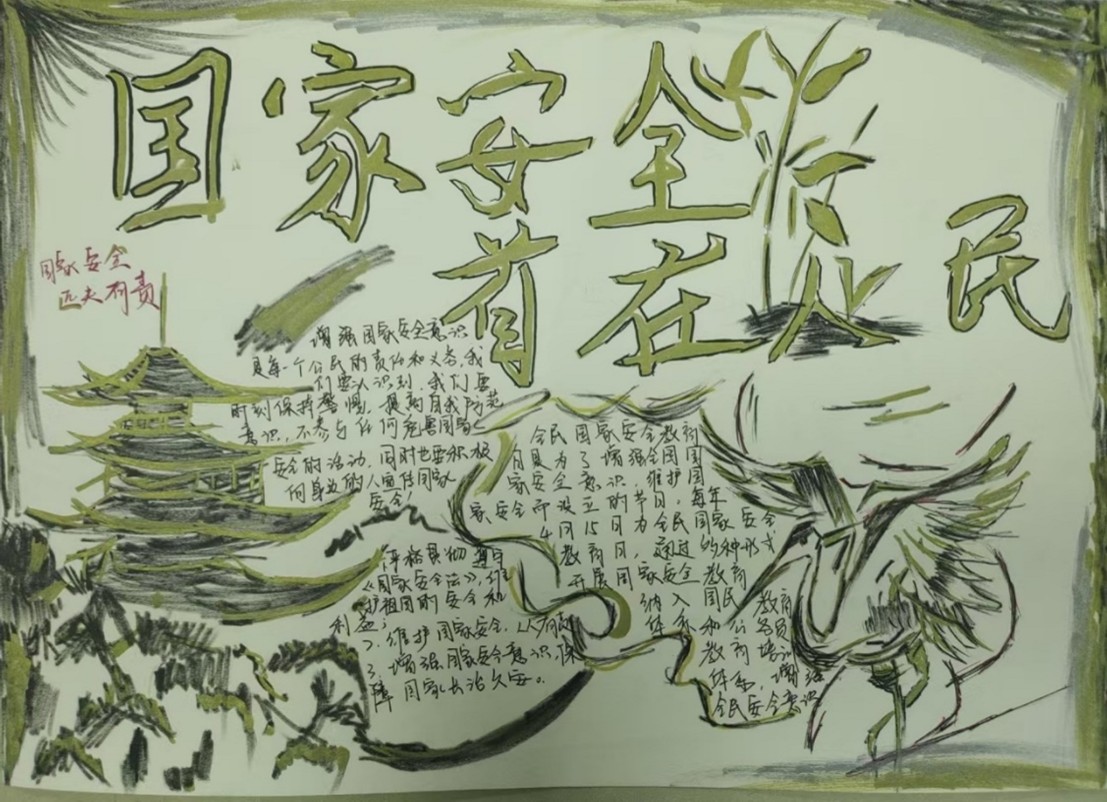 国家安全
首在人民
国家安全
匹夫有责
增强国家安全意识
是每一个公民的责任和义务,我
们要认识到,我们要
时刻保持警惕,提高自我防范
意识,不参与任何危害国家
安全的活动,同时也要积极
向身边的人宣传国家
安全!
全民国家安全教育
日是为了增强全民国
家安全意识,维护国
家安全而设立的节日,每年
4月15日为全民国家安全
教育日,通过多种形式
开展国家安全教育
纳入国民教育
体系和公务员
教育培训
体系,增强
全民安全意识
严格具切遵守
《国家安全法》,维
护祖国的安全和
利益
2、维护国家安全,人人有责
3、增强国家安全意识,保
障国家长治久安。